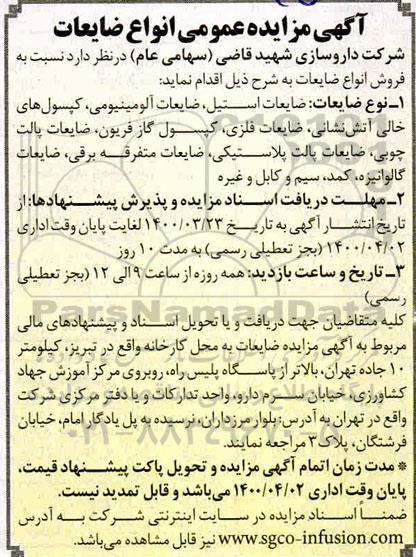 آگهی مزایده عمومی انواع ضایعات
شرکت داروسازی شهید قاضی (سهامی عام) در نظر دارد نسبت به
فروش انواع ضایعات به شرح ذیل اقدام نماید:
۱ـ نوع ضایعات: ضایعات استیل، ضایعات آلومینیومی، کپسول‌های
خالی آتش‌نشانی، ضایعات فلزی، کپسول گاز فریون، ضایعات پالت
چوبی، ضایعات پالت پلاستیکی، ضایعات متفرقه برقی، ضایعات
گالوانیزه، کمد، سیم و کابل و غیره
۲ـ مهلت دریافت اسناد مزایده و پذیرش پیشنهادها: از
تاریخ انتشار آگهی به تاریخ ۱۴۰۰/۰۳/۲۳ لغایت پایان وقت اداری
۱۴۰۰/۰۴/۰۲ (بجز تعطیلی رسمی) به مدت ۱۰ روز
۳ـ تاریخ و ساعت بازدید: همه روزه از ساعت ۹ الی ۱۲ (بجز تعطیلی
رسمی)
کلیه متقاضیان جهت دریافت و یا تحویل اسناد و پیشنهادهای مالی
مربوط به آگهی مزایده ضایعات به محل کارخانه واقع در تبریز، کیلومتر
۱۰ جاده تهران، بالاتر از پاسگاه پلیس راه، روبروی مرکز آموزش جهاد
کشاورزی، خیابان سرم دارو، واحد تدارکات و یا دفتر مرکزی شرکت
واقع در تهران به آدرس: بلوار مرزداران، نرسیده به پل یادگار امام، خیابان
فرشتگان، پلاک ۳ مراجعه نمایند.
* مدت زمان اتمام آگهی مزایده و تحویل پاکت پیشنهاد قیمت،
پایان وقت اداری ۱۴۰۰/۰۴/۰۲ می‌باشد و قابل تمدید نیست.
ضمناً اسناد مزایده در سایت اینترنتی شرکت به آدرس
www.sgco-infusion.com نیز قابل مشاهده می‌باشد.
ParsNamadData